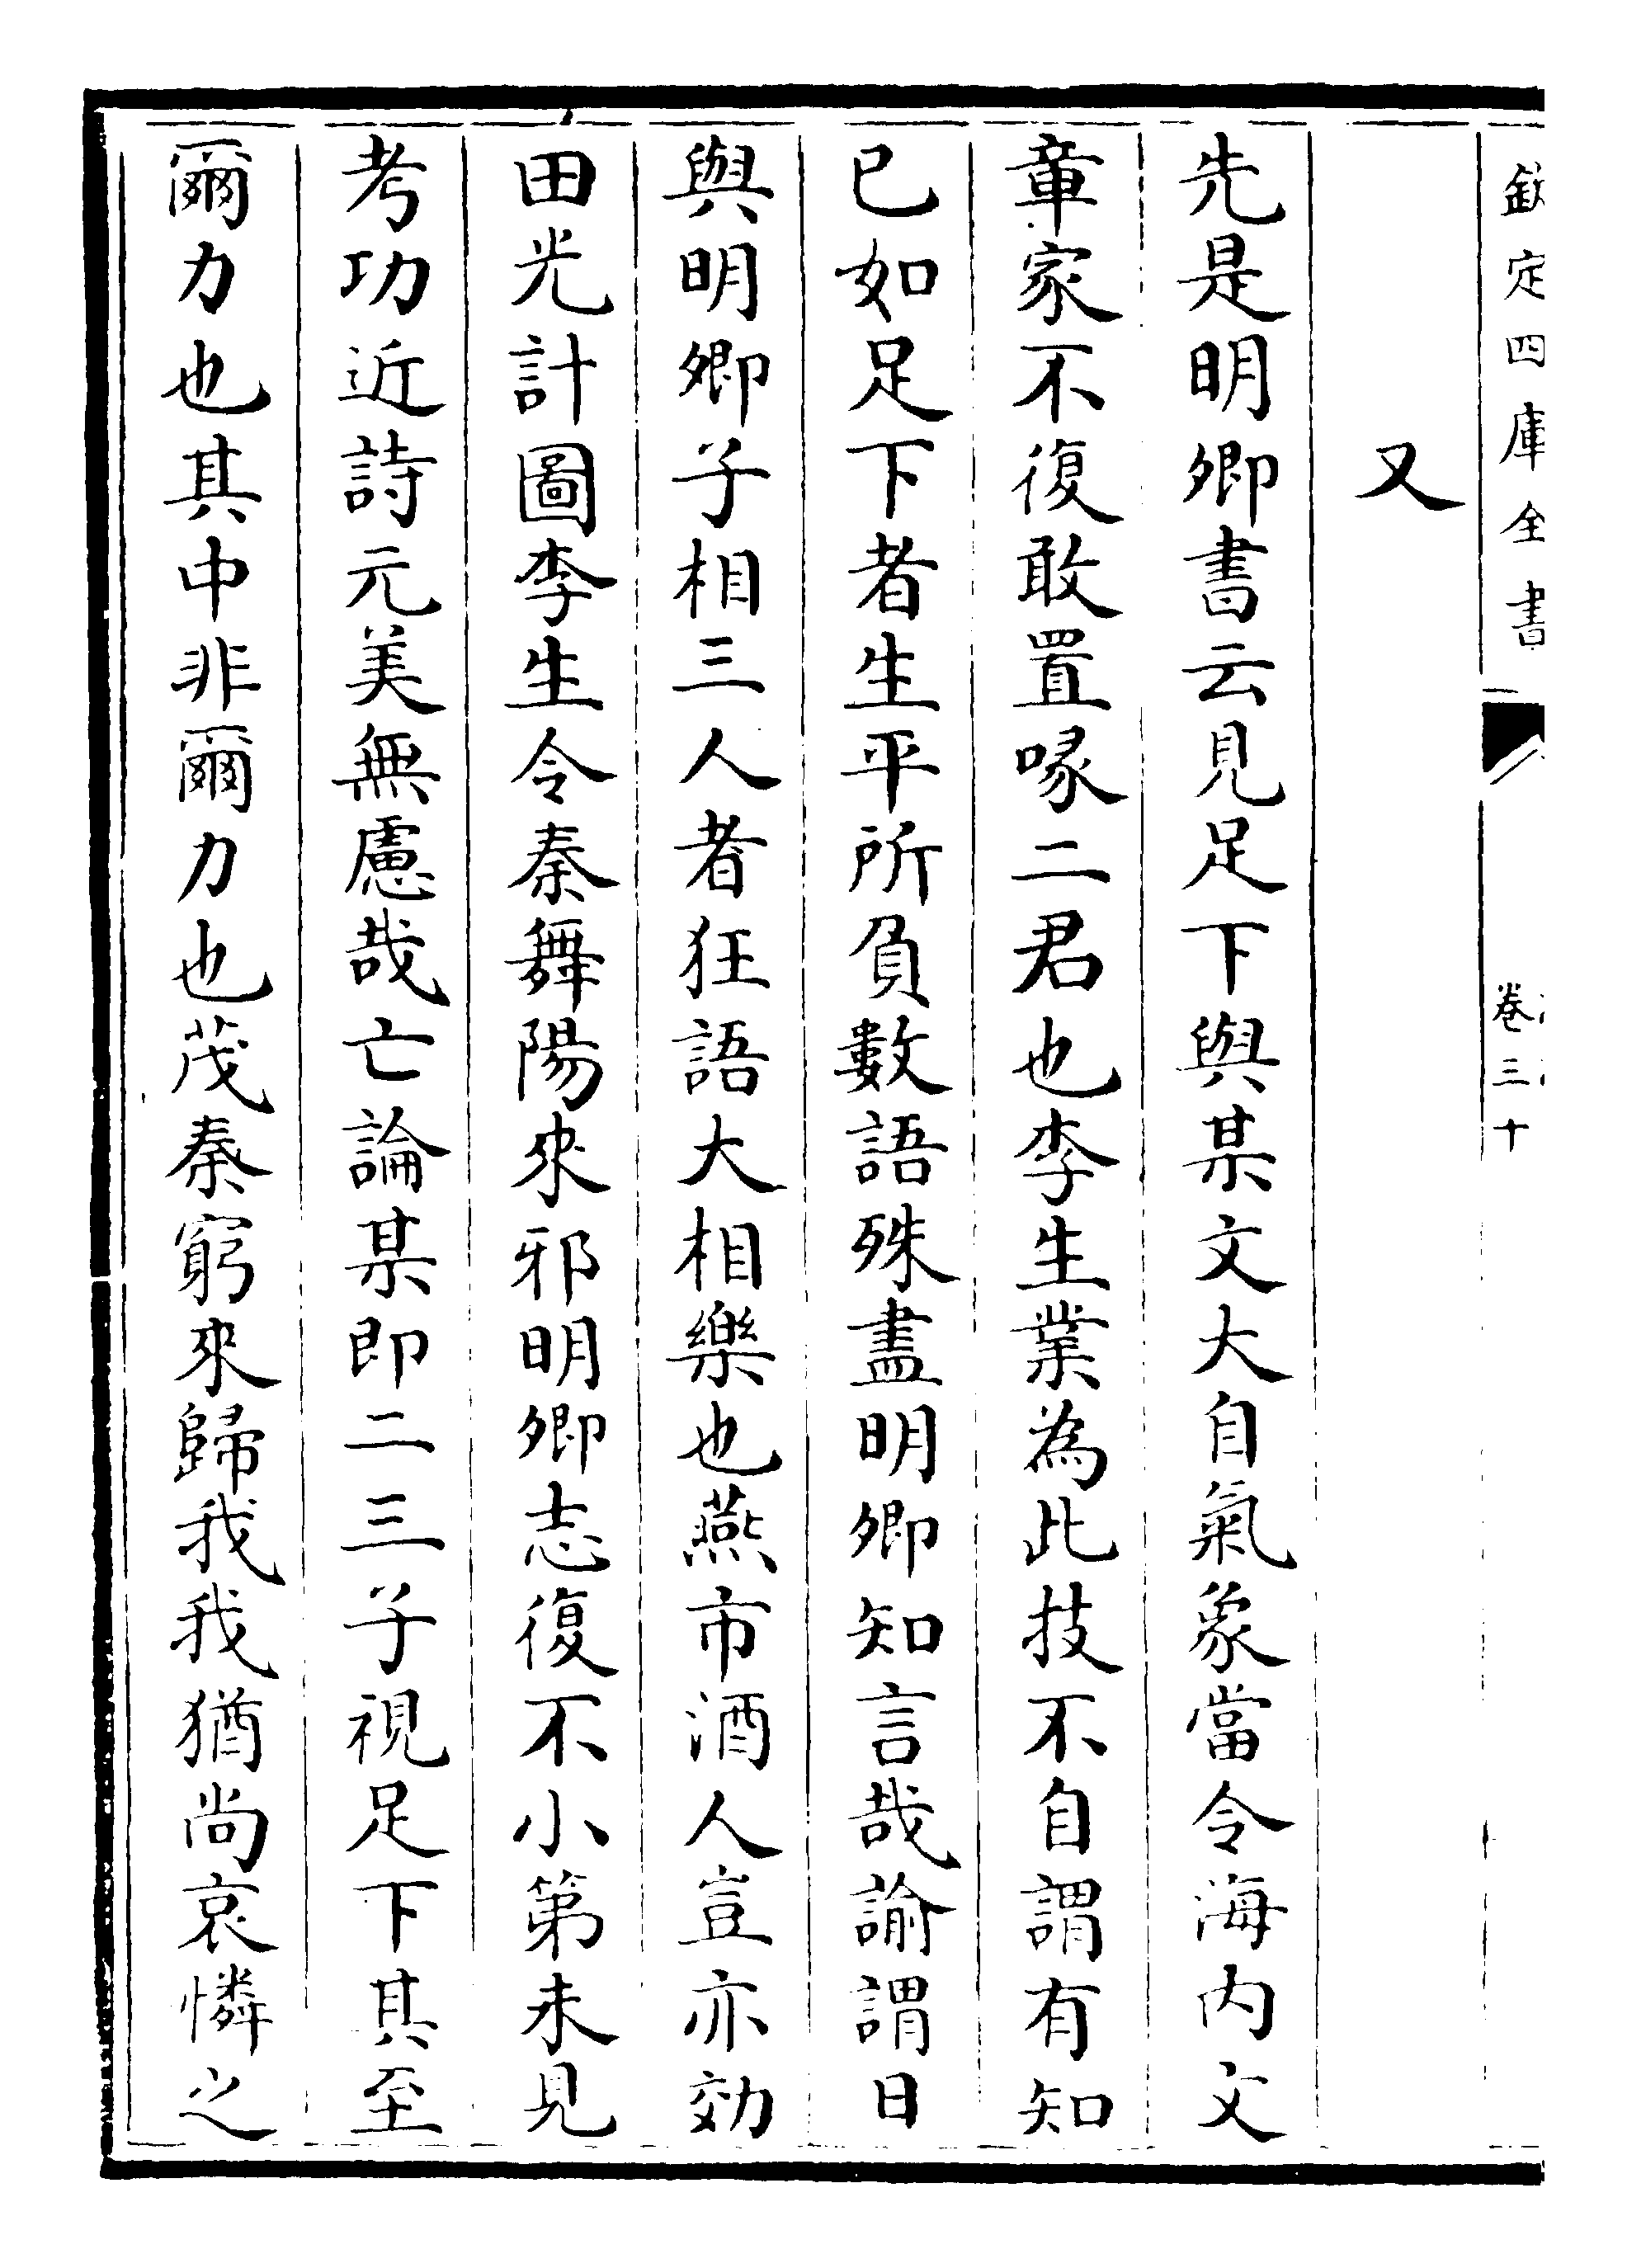 欽定四庫全書
卷三十
又
先是明卿書云見足下與某文大自氣象當令海内文
章家不復敢置喙二君也李生業為此技不自謂有知
已如足下者生平所負數語殊盡明卿知言哉諭謂日
與明卿子相三人者狂語大相樂也燕市酒人豈亦効
田光計圖李生令秦舞陽來邪明卿志復不小第未見
考功近詩元美無慮哉亡論某即二三子視足下其至
爾力也其中非爾力也茂秦窮來歸我我猶尚哀憐之